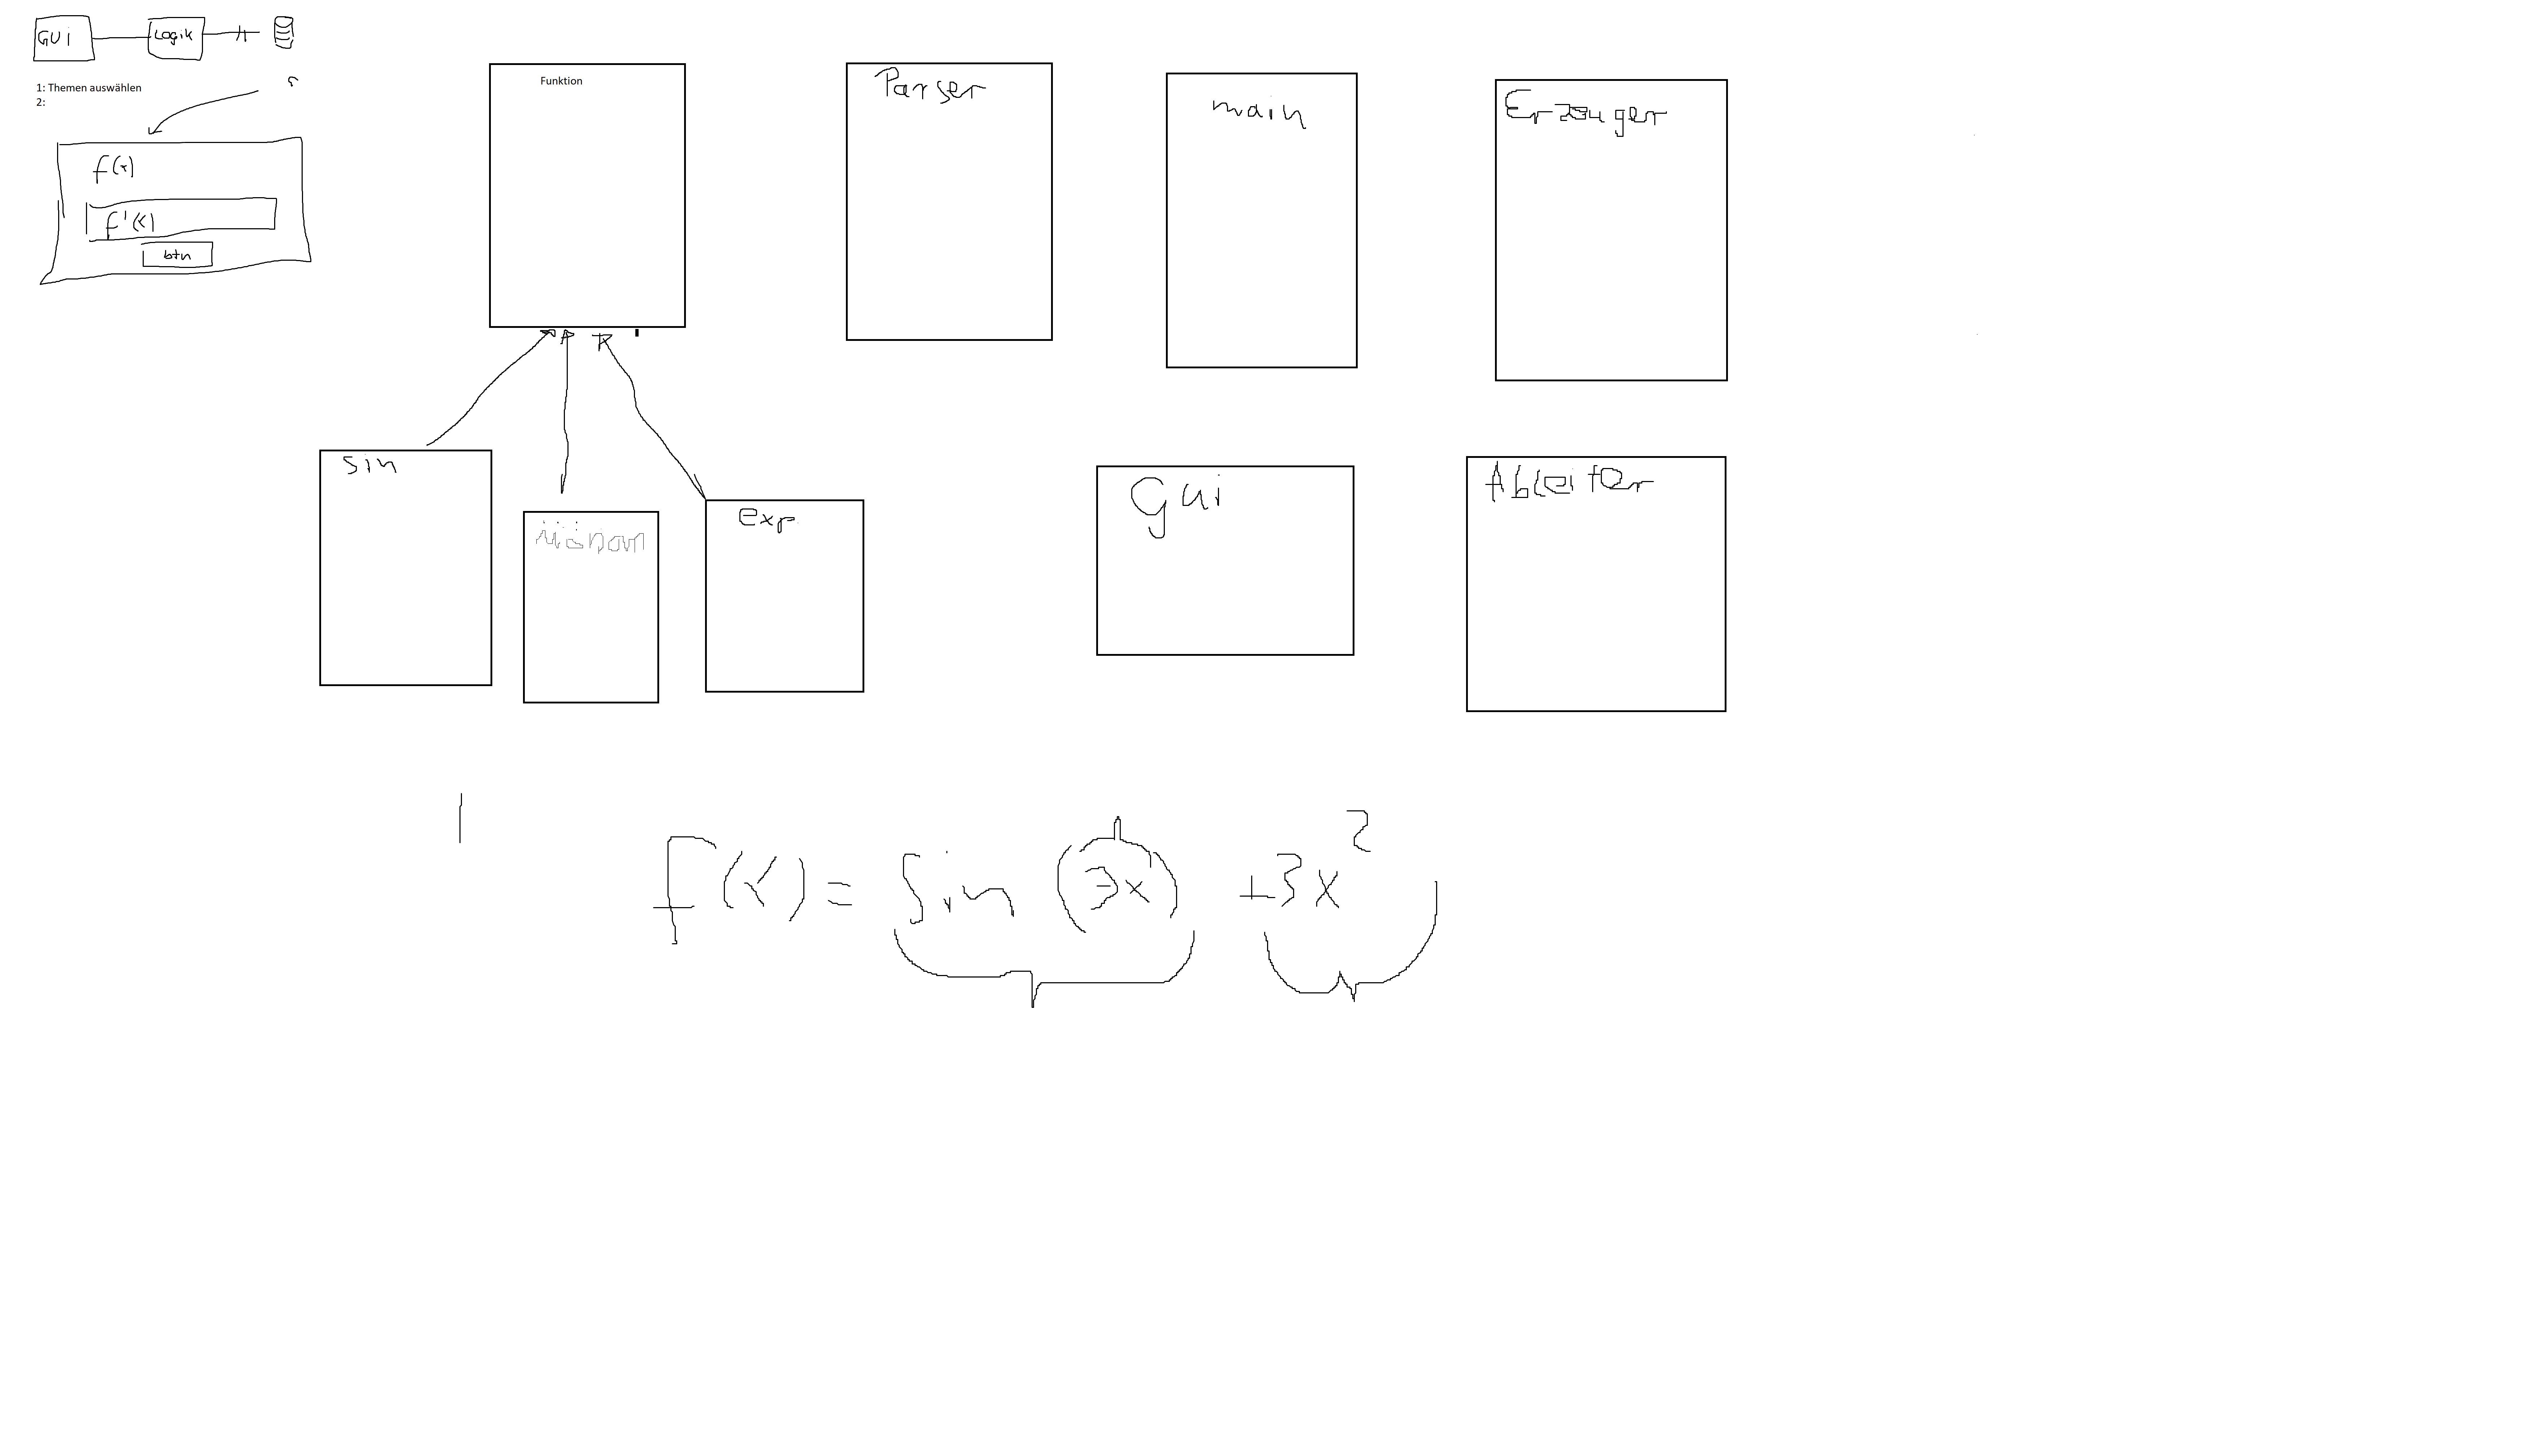 GUI
Logik
1: Themen auswählen
2:
f(x)
f'(x)
btn
Funktion
Parser
main
Erzeuger
sin
exp
Gui
Ableiter
f(x) = sin (3x) + 3x²